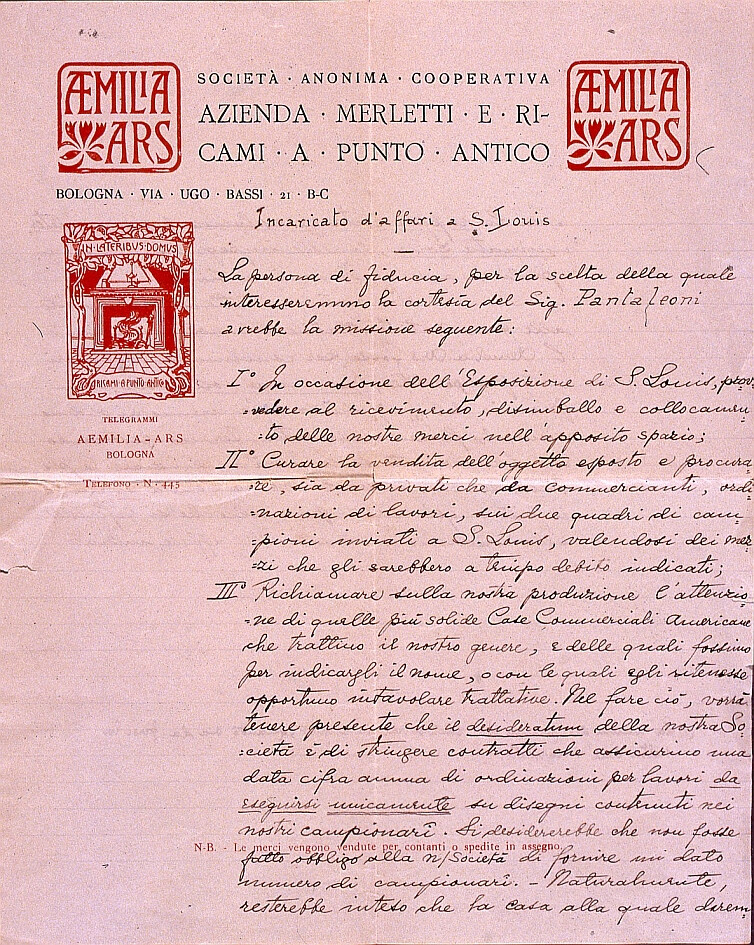 ÆMILIA
ARS
SOCIETÀ · ANONIMA · COOPERATIVA
AZIENDA · MERLETTI · E · RI-
CAMI · A · PUNTO · ANTICO
ÆMILIA
ARS
BOLOGNA · VIA · UGO · BASSI · 21 · B-C
IN·LATERIBUS·DOMUS
RICAMI·A·PUNTO·ANTICO
TELEGRAMMI
AEMILIA-ARS
BOLOGNA
TELEFONO · N · 445
Incaricato d'affari a S. Louis
La persona di fiducia, per la scelta della quale
interesseremmo la cortesia del Sig. Pantaleoni
avrebbe la missione seguente:
I° In occasione dell'Esposizione di S. Louis, prov
=vedere al ricevimento, disimballo e collocamen
=to delle nostre merci nell'apposito spazio;
II° Curare la vendita dell'oggetto esposto e procura
=re, sia da privati che da commercianti, ordi
=nazioni di lavori, sui due quadri di cam
=pioni inviati a S. Louis, valendosi dei mez
=zi che gli sarebbero a tempo debito indicati;
III° Richiamare sulla nostra produzione l'attenzio
=ne di quelle più solide Case Commerciali Americane
che trattino il nostro genere, e delle quali fossimo
per indicargli il nome, o con le quali egli ritenesse
opportuno intavolare trattative. Nel fare ciò, vorrà
tenere presente che il desideratum della nostra So
=cietà è di stringere contratti che assicurino una
data cifra annua di ordinazioni per lavori da
eseguirsi unicamente su disegni contenuti nei
nostri campionarî. Si desidererebbe che non fosse
N-B. - Le merci vengono vendute per contanti o spedite in assegno.
fatto obbligo alla n/ Società di fornire un dato
numero di campionarî. - Naturalmente,
resterebbe inteso che la casa alla quale darem